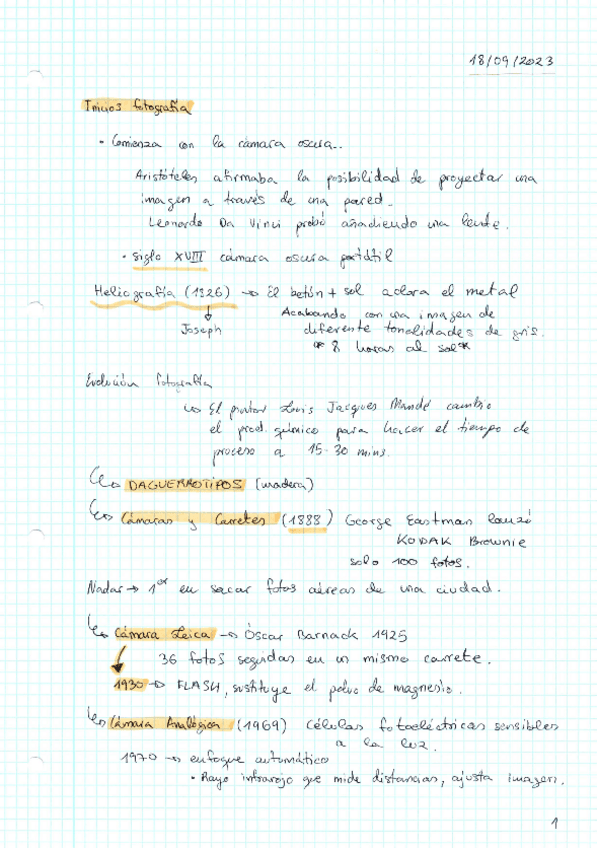 18/09/2023
Inicios fotografía
• Comienza con la cámara oscura..
Aristóteles afirmaba la posibilidad de proyectar una
imagen a través de una pared.
Leonardo Da Vinci probó añadiendo una lente.
• Siglo XVIII cámara oscura portátil
Heliografía (1926) → El betón + sol aclara el metal
Joseph
Acabando con una imagen de
diferente tonalidades de gris.
* 8 horas al sol*
Evolución fotografía
↳ El pintor Luis Jacques Mandé cambio
el prod. químico para hacer el tiempo de
proceso a 15-30 mins.
↳ DAGUERROTIPOS (madera)
↳ Cámaras y Carretes (1888) George Eastman lanzó
KODAK Brownie
solo 100 fotos.
Nadar → 1er en sacar fotos aéreas de una ciudad.
↳ Cámara Leica → Óscar Barnack 1925
36 fotos seguidas en un mismo carrete.
1930 → FLASH, sustituye el polvo de magnesio.
↳ Cámara Analógica (1969) Células fotoeléctricas sensibles
a la luz.
1970 → enfoque automático
• Rayo infrarojo que mide distancias, ajusta imagen.
1